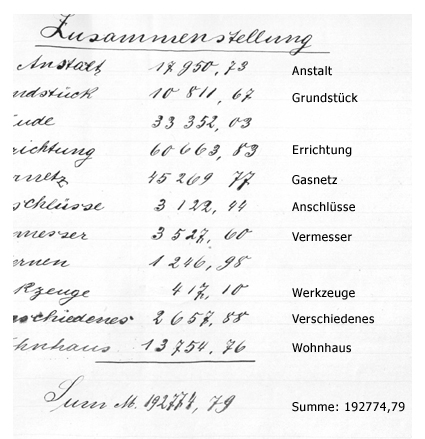 Zusammenstellung
Anstalt 17950,73 Anstalt
ndstück 10811,67 Grundstück
ude 33352,03
richtung 60663,83 Errichtung
rnetz 45269 77 Gasnetz
schlüsse 3122,44 Anschlüsse
messer 3527,60 Vermesser
ernen 1246,98
kzeuge 417,10 Werkzeuge
schiedenes 2657,88 Verschiedenes
ohnhaus 13754,76 Wohnhaus
Sum M. 192774,79 Summe: 192774,79